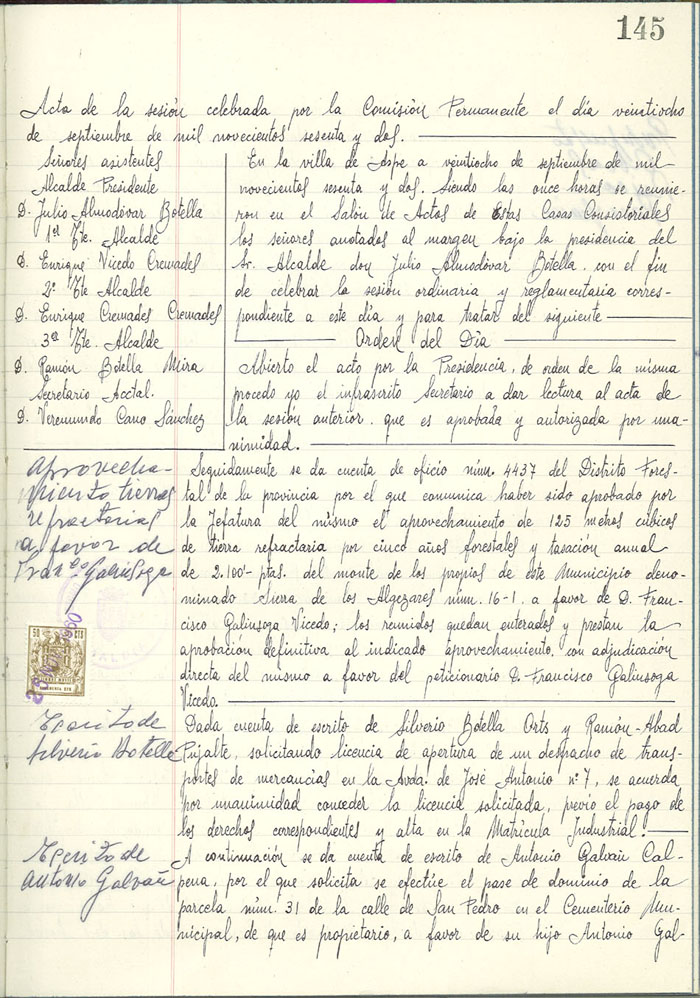 145
Acta de la sesión celebrada por la Comisión Permanente el día veintiocho
de septiembre de mil novecientos sesenta y dos.
Señores asistentes
Alcalde Presidente
D. Julio Almodóvar Botella
1er Tte. Alcalde
D. Enrique Vicedo Cremades
2º Tte Alcalde
D. Enrique Cremades Cremades
3er Tte. Alcalde
D. Ramón Botella Mira
Secretario Acctal.
D. Veremundo Cano Sánchez
En la villa de Aspe a veintiocho de septiembre de mil-
novecientos sesenta y dos. Siendo las once horas se reunie-
ron en el Salón de Actos de Estas Casas Consistoriales
los señores anotados al margen bajo la presidencia del
Sr. Alcalde don Julio Almodóvar Botella, con el fin
de celebrar la sesión ordinaria y reglamentaria corres-
pondiente a este día y para tratar del siguiente
Orden del Día
Abierto el acto por la Presidencia, de orden de la misma
procedo yo el infrascrito Secretario a dar lectura al acta de
la sesión anterior, que es aprobada y autorizada por una-
nimidad.
Aprovecha-
miento tierras
refractarias
a favor de
Franco Galiusoga
Seguidamente se da cuenta de oficio núm. 4437 del Distrito Fores-
tal de la provincia por el que comunica haber sido aprobado por
la Jefatura del mismo el aprovechamiento de 125 metros cúbicos
de tierra refractaria por cinco años forestales y tasación anual
de 2.100'- ptas. del monte de los propios de este Municipio deno-
minado Sierra de los Algezares núm. 16-1, a favor de D. Fran-
cisco Galiusoga Vicedo; los reunidos quedan enterados y prestan la
aprobación definitiva al indicado aprovechamiento, con adjudicación
directa del mismo a favor del peticionario D. Francisco Galiusoga
Vicedo.
50 CTS
Escrito de
Silverio Botella
Dada cuenta de escrito de Silverio Botella Orts y Ramón Abad
Pujalte, solicitando licencia de apertura de un despacho de trans-
portes de mercancías en la Avda. de José Antonio nº 7, se acuerda
por unanimidad conceder la licencia solicitada, previo el pago de
los derechos correspondientes y alta en la Matrícula Industrial.
Escrito de
Antonio Galvañ
A continuación se da cuenta de escrito de Antonio Galvañ Cal-
pena, por el que solicita se efectúe el pase de dominio de la
parcela núm. 31 de la calle de San Pedro en el Cementerio Mu-
nicipal, de que es propietario, a favor de su hijo Antonio Gal-